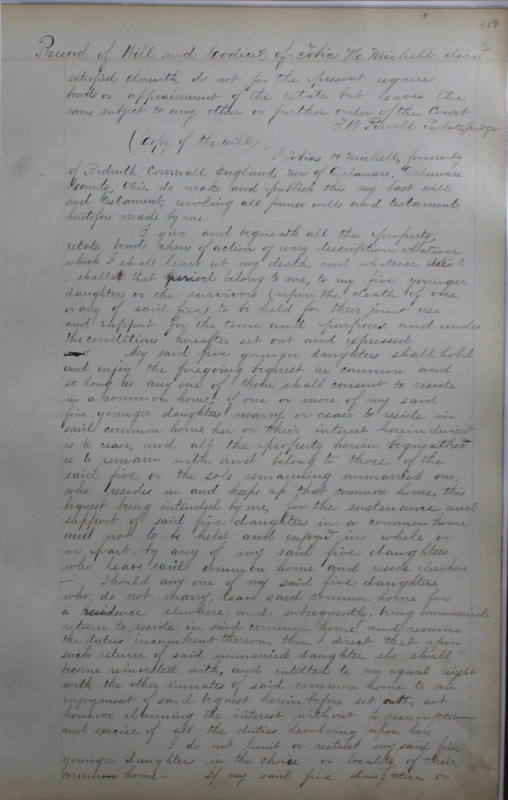 319
Record of Will and Codicil of Tobias H Michell decd
satisfied therewith do not for the present require
bonds or appraisement of the estate but leaves the
same subject to any other or further order of the Court
T W Powell Probate Judge
(Copy of the will)
I Tobias H Michell, formerly
of Redruth Cornwall England, now of Delaware, Delaware
County, Ohio, do make and publish this my last will
and testament, revoking all former wills and testaments
heretofore made by me.
I give and bequeath all the property,
estate, bonds choses of action of every description whatever
which I shall leave at my death, and whatever
shall at that period belong to me, to my five younger
daughters or the survivors (upon the death of one
or any of said five) to be held for their joint use
and support for the time and purposes and under
the conditions hereafter set out and expressed
My said five younger daughters shall hold
and enjoy the foregoing bequest in common and
so long as any one of them shall consent to reside
in a common home, if one or more of my said
five younger daughters marry or cease to reside in
said common home her or their interest herein devised
is to cease, and all the property herein bequeathed
is to remain with and belong to those of the
said five, or the sole remaining unmarried one,
who resides in and keeps up that common home, this
bequest being intended by me, for the sustenance and
support of said five daughters in a common home
and not to be held and enjoyed in whole or
in part, by any of my said five daughters
who leave said common home and reside elsewhere
— Should any one of my said five daughters,
who do not marry, leave said common home for
a residence elsewhere, and subsequently, being unmarried
return to reside in said common home and resume
the duties incumbent thereon, then I direct that upon
such return of said unmarried daughter, she shall
become reinvested with, and entitled to an equal right
with the other inmates of said common home to an
enjoyment of said bequest herein before set out, not
however claiming the interest without a resumption
and exercise of all the duties devolving upon her.
I do not limit or restrict my said five
younger daughters in the choice or locality of their
common home — If my said five daughters or